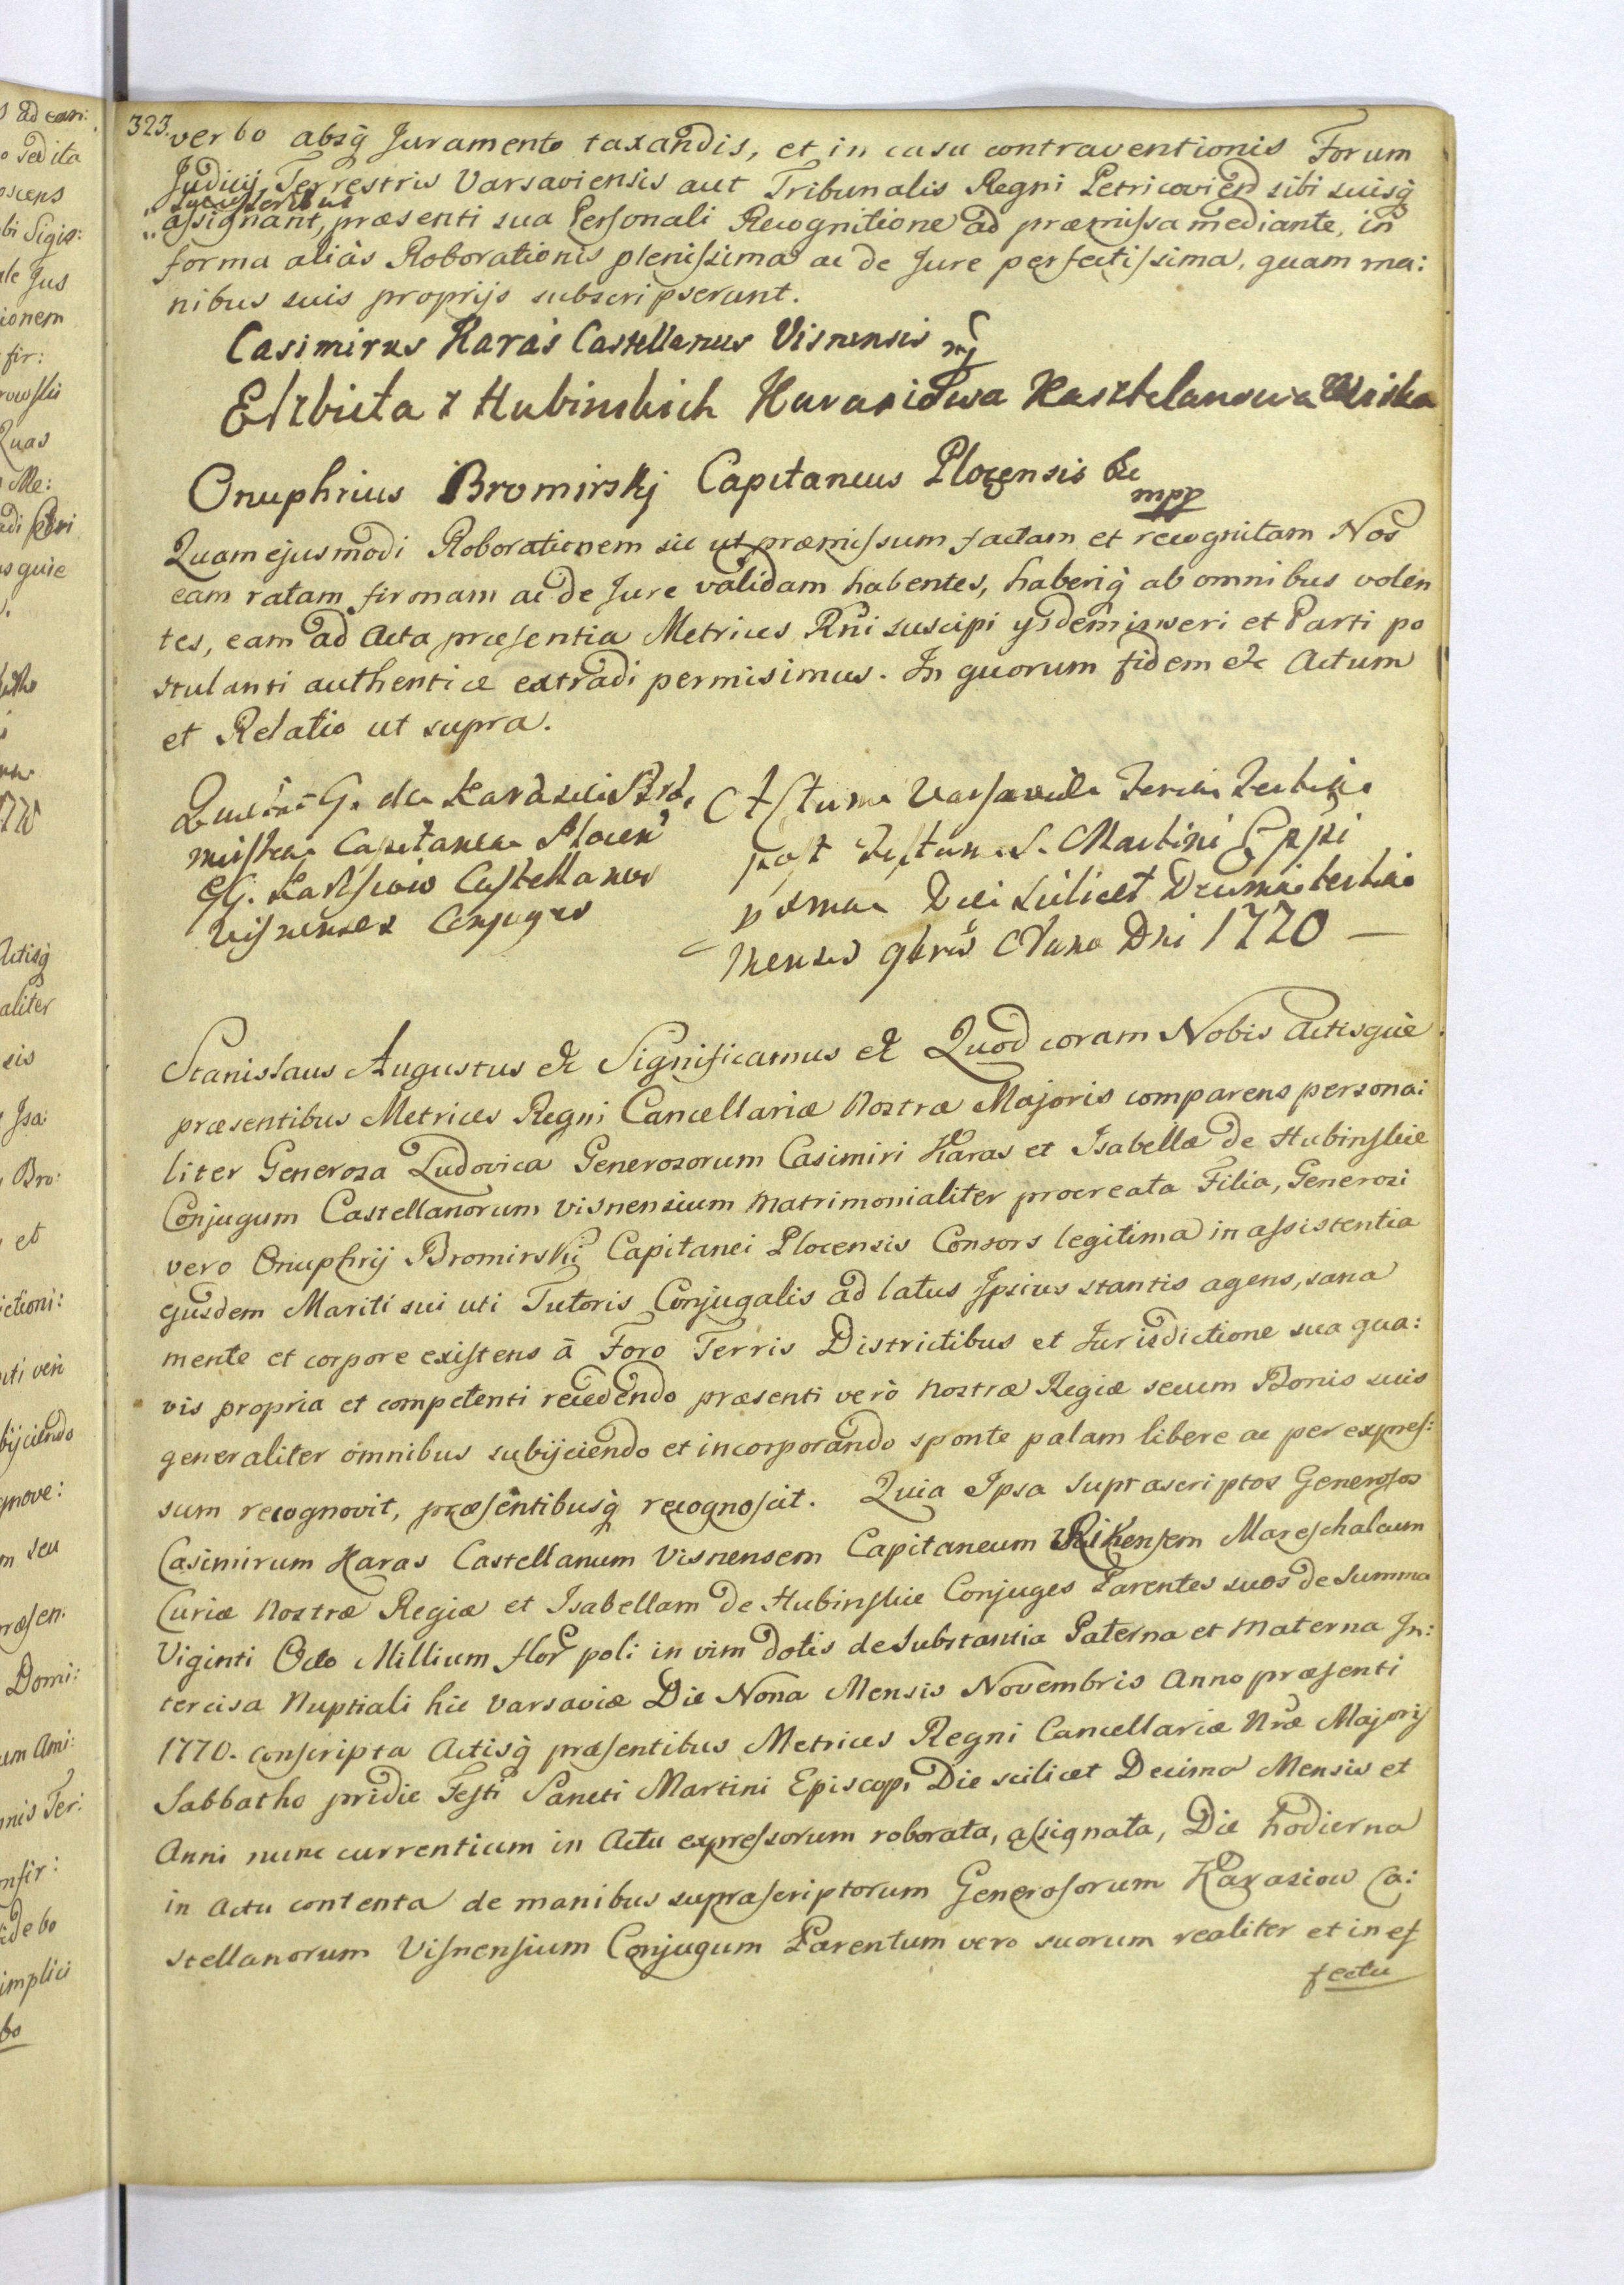 323.
verbo absq̃ Juramento taxandis, et in casu contraventionis Forum
Judicij Terrestris Varsaviensis aut Tribunalis Regni Petricovien̄ sibi suisq̃
"Successoribus
"assignant, præsenti sua Personali Recognitione ad præmissa mediante, in
forma aliàs Roborationis plenissima ac de Jure perfectissima, quam ma:
nibus suis proprijs subscripserunt.
Casimirus Karaś Castellanus Visnensis mp
Elzbieta z Hubinskich Karasiowa Kasztelanowa Wiska
Onuphrius Bromirskj Capitaneus Plocensis &c
mpp
Quam ejusmodi Roborationem sic ut præmissum factam et recognitam Nos
eam ratam firmam ac de Jure validam habentes, haberiq̃ ab omnibus volen
tes, eam ad Acta præsentia Metrices Rñi suscipi ijsdem inseri et Parti po
stulanti authentice extradi permisimus. In quorum fidem &c Actum
et Relatio ut supra.
G. de
Capitanea Plocen̄
GG. Castellanos
Visnenses Conjuges
Actum Varsaviæ Feria Tertia
post Festum S. Martini Eppi
proxima Die scilicet Decima tertia
Mensis 9bris Anno Dni 1770 —
Stanislaus Augustus &c Significamus &c Quod coram Nobis Actisque
præsentibus Metrices Regni Cancellariæ Nostræ Majoris comparens persona:
liter Generosa Ludovica Generosorum Casimiri Karas et Isabellæ de Hubinskie
Conjugum Castellanorum Visnensium Matrimonialiter procreata Filia, Generosi
vero Onuphrij Bromirski Capitanei Plocensis Consors legitima in assistentia
ejusdem Mariti sui uti Tutoris Conjugalis ad latus Ipsius stantis agens, sana
mente et corpore existens à Foro Terris Districtibus et Jurisdictione sua qua:
vis propria et competenti recedendo præsenti verò Nostræ Regiæ secum Bonis suis
generaliter omnibus subijciendo et incorporando sponte palam libere ac per expres:
sum recognovit, præsentibusq̃ recognoscit. Quia Ipsa Suprascriptos Generosos
Casimirum Karas Castellanum Visnensem Capitaneum Mareschalcum
Curiæ Nostræ Regiæ et Isabellam de Hubinskie Conjuges Parentes suos de Summa
Viginti Octo Millium flor̃ poli in vim dotis de Substantia Paterna et Materna In:
tercisa Nuptiali hic Varsaviæ Die Nona Mensis Novembris Anno præsenti
1770. conscripta Actisq̃ præsentibus Metrices Regni Cancellariæ Nræ Majoris
Sabbatho pridie Festi Sancti Martini Episcopi Die scilicet Decima Mensis et
Anni nunc currentium in Actu expressorum roborata, assignata, Die hodierna
in Actu contenta de manibus suprascriptorum Generosorum Karasiow Ca:
stellanorum Visnensium Conjugum Parentum vero suorum realiter et in ef
fectu